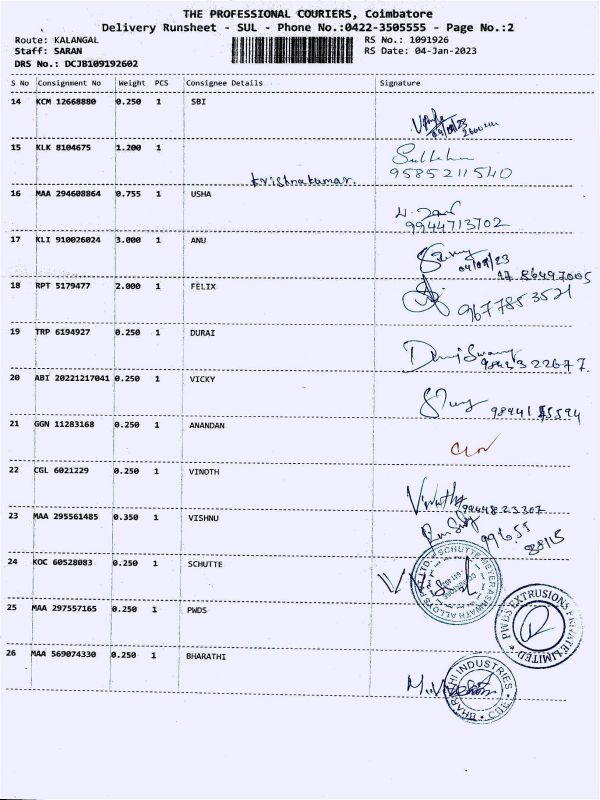 THE PROFESSIONAL COURIERS, Coimbatore
Delivery Runsheet - SUL - Phone No.:0422-3505555 - Page No.:2
Route: KALANGAL
RS No.: 1091926
Staff: SARAN
RS Date: 04-Jan-2023
DRS No.: DCJB109192602
S No Consignment No Weight PCS Consignee Details Signature
14 KCM 12668880 0.250 1 SBI
15 KLK 8104675 1.200 1
krishnakumar.
9585211540
16 MAA 294608864 0.755 1 USHA
9944713702
17 KLI 910026024 3.000 1 ANU
18 RPT 5179477 2.000 1 FELIX
9677853521
19 TRP 6194927 0.250 1 DURAI
20 ABI 20221217041 0.250 1 VICKY
21 GGN 11283168 0.250 1 ANANDAN
22 CGL 6021229 0.250 1 VINOTH
Vinoth
9944823307
23 MAA 295561485 0.350 1 VISHNU
99655
24 KOC 60528083 0.250 1 SCHUTTE
25 MAA 297557165 0.250 1 PWDS
PWDS EXTRUSIONS PRIVATE LIMITED
26 MAA 569074330 0.250 1 BHARATHI
BHARATHI INDUSTRIES CBE